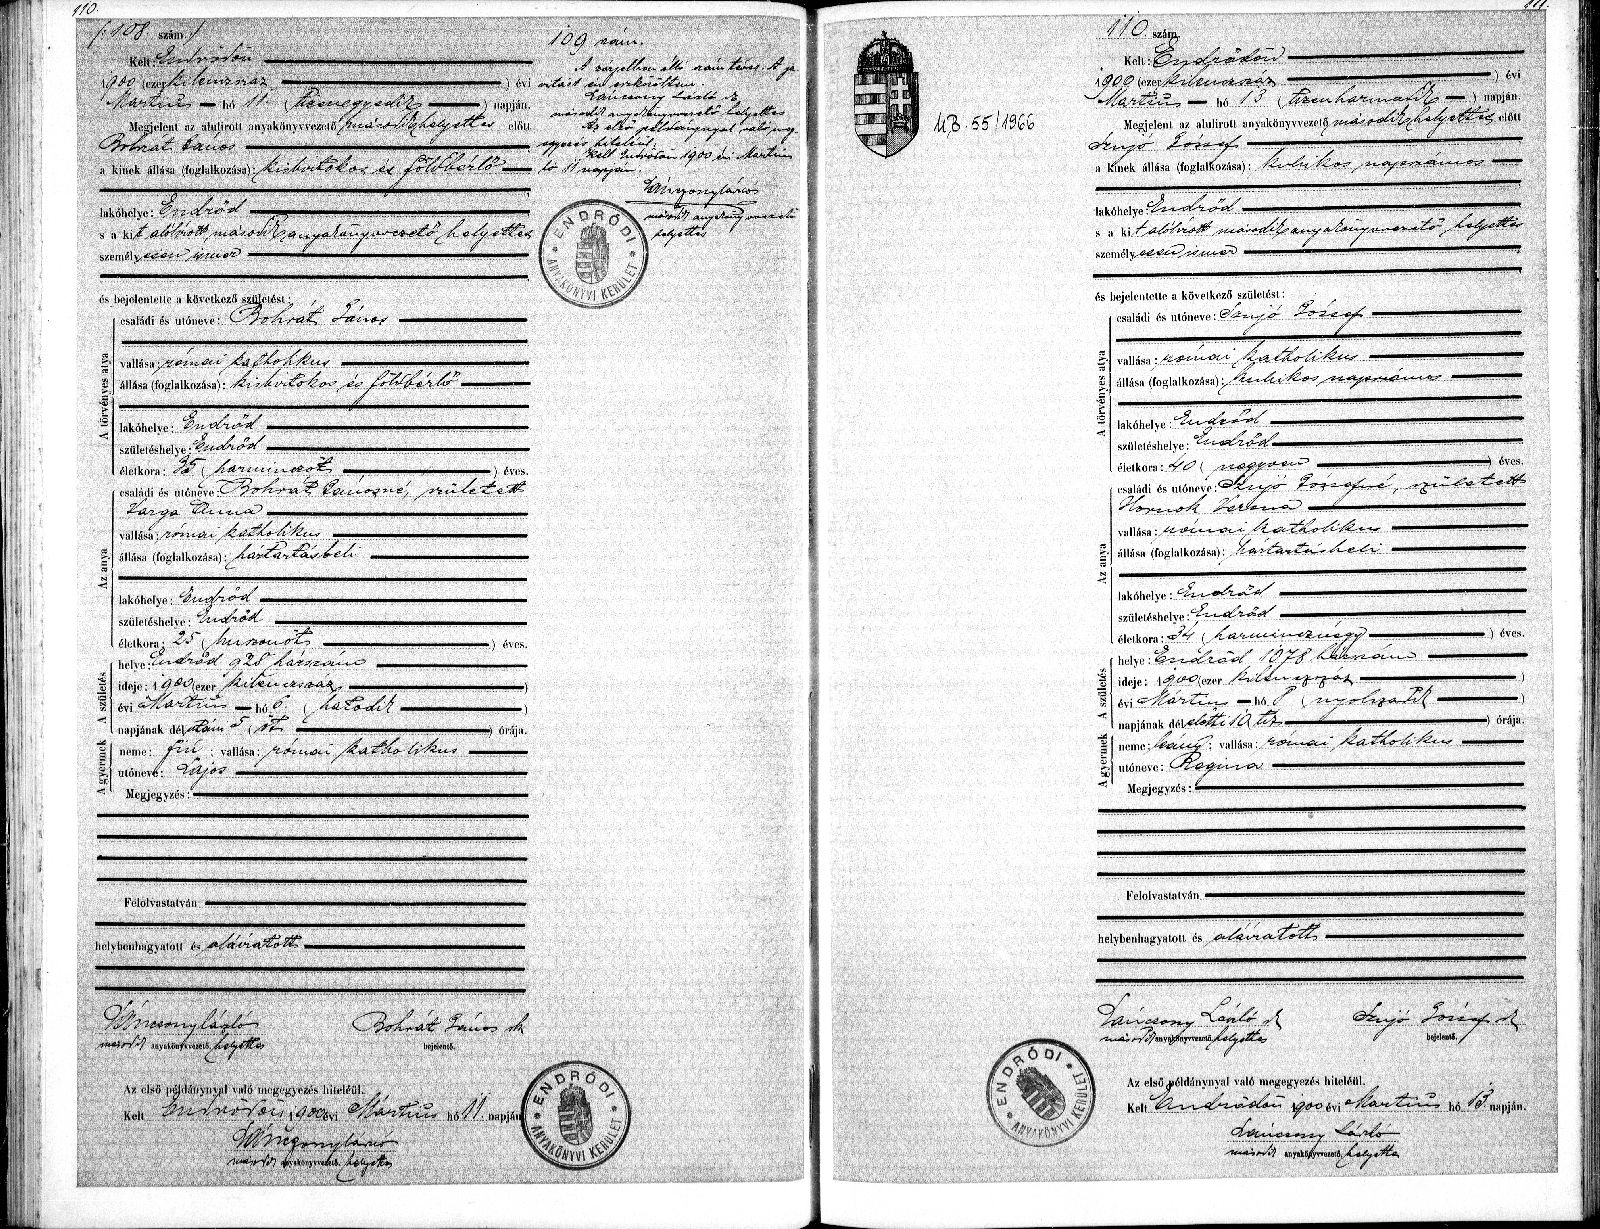 110.
/: 108. szám :/
Kelt: Endrődön
1900 (ezer kilenczszáz ) évi
Martius hó 11. ( tizenegyedik ) napján.
Megjelent az alulirott anyakönyvvezető második helyettes előtt
Bohrát János
a kinek állása (foglalkozása): kisbirtokos és földbérlő
lakóhelye: Endrőd
s a kit alólirott második anyakönyvvezető helyettes
személyesen ismer
és bejelentette a következő születést:
A törvényes atya
családi és utóneve: Bohrát János
vallása: római katholikus
állása (foglalkozása): kisbirtokos és földbérlő
lakóhelye: Endrőd
születéshelye: Endrőd
életkora: 35 ( harminczöt ) éves.
Az anya
családi és utóneve: Bohrát Jánosné, született
Varga Anna
vallása: római katholikus
állása (foglalkozása): háztartásbeli
lakóhelye: Endrőd
születéshelye: Endrőd
életkora: 25 ( huszonöt ) éves.
A születés
helye: Endrőd 928 házszám
ideje: 1900 (ezer kilenczszáz )
évi Martius hó 6. ( hatodik )
napjának délután 5 ( öt ) órája.
A gyermek
neme: fiú ; vallása: római katholikus
utóneve: Lajos
Megjegyzés:
Felolvastatván
helybenhagyatott és aláiratott
Láncsony László
második anyakönyvvezető helyettes
Bohrát János sk
bejelentő.
Az első példánynyal való megegyezés hiteléül.
Kelt Endrődön 1900 évi Mártius hó 11. napján
Láncsony László
második anyakönyvvezető helyettes
ENDRŐDI ANYAKÖNYVI KERÜLET
109 szám.
második anyakönyvvezető helyettes
Az első példánynyal való meg-
egyezés hiteléül.
Kelt Endrődön 1900 évi Martius
hó 11 napján.
Láncsony László
második anyakönyvvezető
helyettes
ENDRŐDI ANYAKÖNYVI KERÜLET
111.
M.B. 55/1966
110. szám.
Kelt: Endrődön
1900 (ezer kilenczszáz ) évi
Martius hó 13 ( tizenharmadik ) napján.
Megjelent az alulirott anyakönyvvezető második helyettes előtt
Szujó József
a kinek állása (foglalkozása): kubikos napszámos
lakóhelye: Endrőd
s a kit alólirott második anyakönyvvezető helyettes
személyesen ismer
és bejelentette a következő születést:
A törvényes atya
családi és utóneve: Szujó József
vallása: római katholikus
állása (foglalkozása): kubikos napszámos
lakóhelye: Endrőd
születéshelye: Endrőd
életkora: 40 ( negyven ) éves.
Az anya
családi és utóneve: Szujó Józsefné, született
Hornok Verona
vallása: római katholikus
állása (foglalkozása): háztartásbeli
lakóhelye: Endrőd
születéshelye: Endrőd
életkora: 34 ( harmincznégy ) éves.
A születés
helye: Endrőd 1078 házszám
ideje: 1900 (ezer kilenczszáz )
évi Mártius hó 8 ( nyolczadik )
napjának délelőtti 10 tiz órája.
A gyermek
neme: leány ; vallása: római katholikus
utóneve: Regina
Megjegyzés:
Felolvastatván
helybenhagyatott és aláiratott
Láncsony László sk
második anyakönyvvezető helyettes
Szujó József sk
bejelentő.
ENDRŐDI ANYAKÖNYVI KERÜLET
Az első példánynyal való megegyezés hiteléül.
Kelt Endrődön 1900 évi Martius hó 13 napján.
Láncsony László
második anyakönyvvezető helyettes